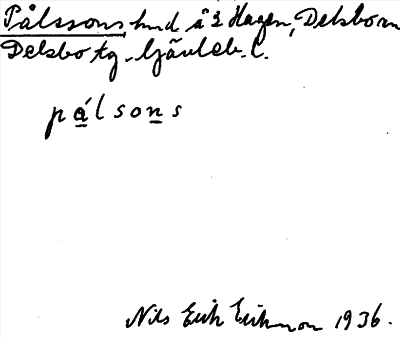 Pålssons hmd å 2 Hagen, Delsbo sn
Delsbo tg. Gävleb. l.
pá̲lson̲s
Nils Erik Erikson 1936.